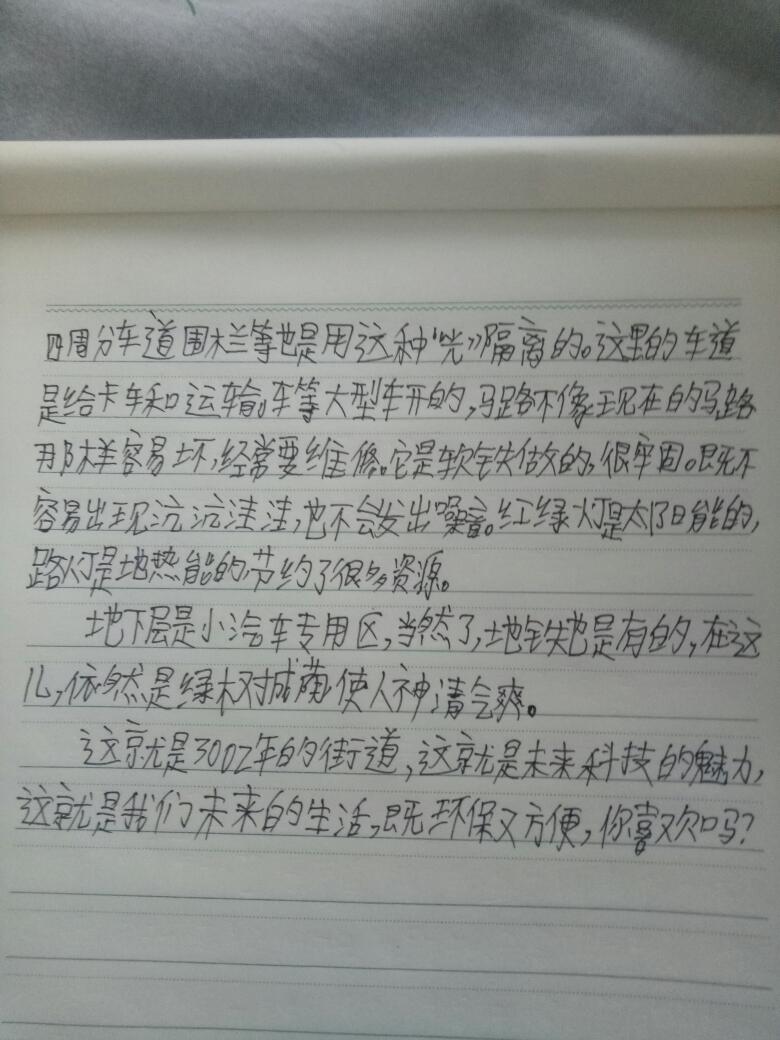 四周分车道围栏等也是用这种“光”隔离的。这里的车道
是给卡车和运输车等大型车开的，马路不像现在的马路
那样容易坏，经常要维修。它是软铁做的，很牢固。既不
容易出现坑坑洼洼，也不会发出噪音。红绿灯是太阳能的，
路灯是地热能的，节约了很多资源。
地下层是小汽车专用区，当然了，地铁也是有的，在这
儿，依然是绿树成荫，使人神清气爽。
这就是3002年的街道，这就是未来科技的魅力，
这就是我们未来的生活，既环保又方便，你喜欢吗？